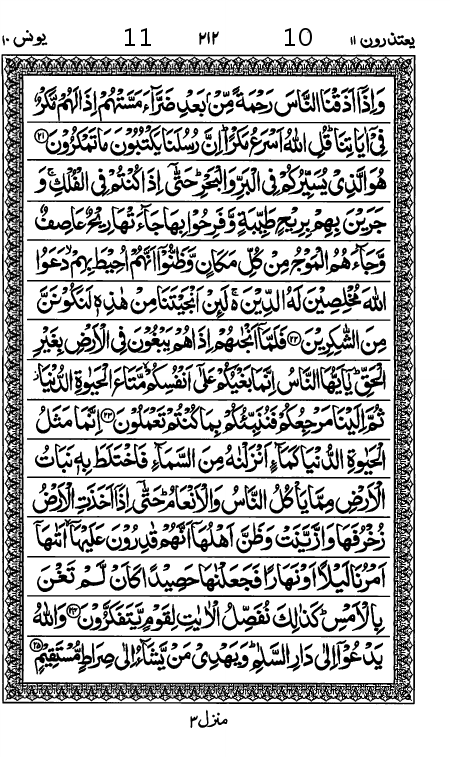 یعتذرون ۱۱ 10 ۲۱۲ 11 یونس ۱۰
وَاِذَاۤ اَذَقْنَا النَّاسَ رَحْمَةً مِّنْۢ بَعْدِ ضَرَّآءَ مَسَّتْهُمْ اِذَا لَهُمْ مَّكْرٌ
فِیْۤ اٰیَاتِنَا ؕ قُلِ اللّٰهُ اَسْرَعُ مَكْرًا ؕ اِنَّ رُسُلَنَا یَكْتُبُوْنَ مَا تَمْكُرُوْنَ ﴿۲۱﴾
هُوَ الَّذِیْ یُسَیِّرُكُمْ فِی الْبَرِّ وَالْبَحْرِ ؕ حَتّٰۤی اِذَا كُنْتُمْ فِی الْفُلْكِ ۚ وَ
جَرَیْنَ بِهِمْ بِرِیْحٍ طَیِّبَةٍ وَّفَرِحُوْا بِهَا جَآءَتْهَا رِیْحٌ عَاصِفٌ
وَّجَآءَهُمُ الْمَوْجُ مِنْ كُلِّ مَكَانٍ وَّظَنُّوْۤا اَنَّهُمْ اُحِیْطَ بِهِمْ ۙ دَعَوُا
اللّٰهَ مُخْلِصِیْنَ لَهُ الدِّیْنَ ۚ۬ لَئِنْ اَنْجَیْتَنَا مِنْ هٰذِهٖ لَنَكُوْنَنَّ
مِنَ الشّٰكِرِیْنَ ﴿۲۲﴾ فَلَمَّاۤ اَنْجٰهُمْ اِذَا هُمْ یَبْغُوْنَ فِی الْاَرْضِ بِغَیْرِ
الْحَقِّ ؕ یٰۤاَیُّهَا النَّاسُ اِنَّمَا بَغْیُكُمْ عَلٰۤی اَنْفُسِكُمْ ۙ مَّتَاعَ الْحَیٰوةِ الدُّنْیَا ؗ
ثُمَّ اِلَیْنَا مَرْجِعُكُمْ فَنُنَبِّئُكُمْ بِمَا كُنْتُمْ تَعْمَلُوْنَ ﴿۲۳﴾ اِنَّمَا مَثَلُ
الْحَیٰوةِ الدُّنْیَا كَمَآءٍ اَنْزَلْنٰهُ مِنَ السَّمَآءِ فَاخْتَلَطَ بِهٖ نَبَاتُ
الْاَرْضِ مِمَّا یَاْكُلُ النَّاسُ وَالْاَنْعَامُ ؕ حَتّٰۤی اِذَاۤ اَخَذَتِ الْاَرْضُ
زُخْرُفَهَا وَازَّیَّنَتْ وَظَنَّ اَهْلُهَاۤ اَنَّهُمْ قٰدِرُوْنَ عَلَیْهَاۤ ۙ اَتٰىهَاۤ
اَمْرُنَا لَیْلًا اَوْ نَهَارًا فَجَعَلْنٰهَا حَصِیْدًا كَاَنْ لَّمْ تَغْنَ
بِالْاَمْسِ ؕ كَذٰلِكَ نُفَصِّلُ الْاٰیٰتِ لِقَوْمٍ یَّتَفَكَّرُوْنَ ﴿۲۴﴾ وَاللّٰهُ
یَدْعُوْۤا اِلٰی دَارِ السَّلٰمِ ؕ وَیَهْدِیْ مَنْ یَّشَآءُ اِلٰی صِرَاطٍ مُّسْتَقِیْمٍ ﴿۲۵﴾
منزل ۳